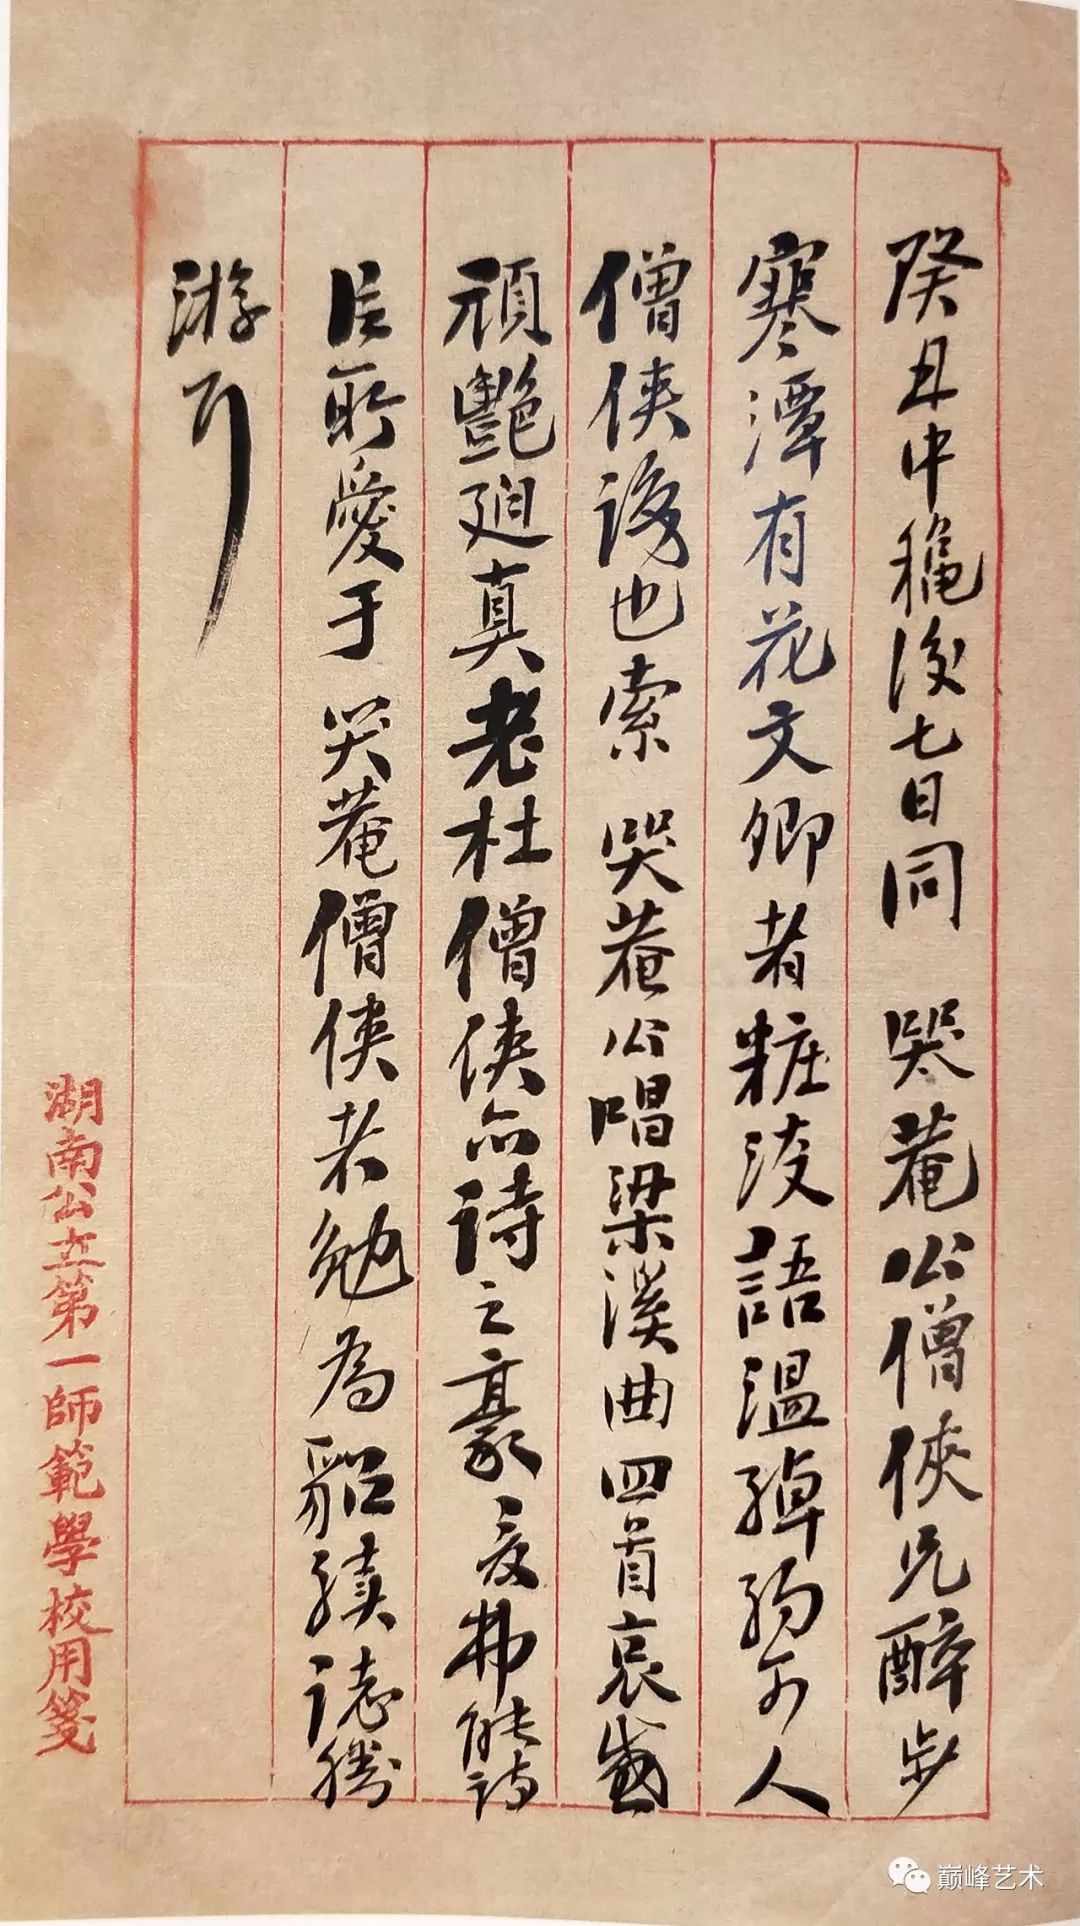 癸丑中龝後七日同 哭菴公僧俠兄醉步
寒潭有花文卿者粧淡語温綽約可人
僧俠後也索 哭菴公唱梁溪曲四首哀感
頑艷廻真老杜僧俠亦詩之豪友弗能詩
臣所愛于 哭菴僧俠者勉為貂續誌勝
游耳
湖南公立第一師範學校用箋
巅峰艺术